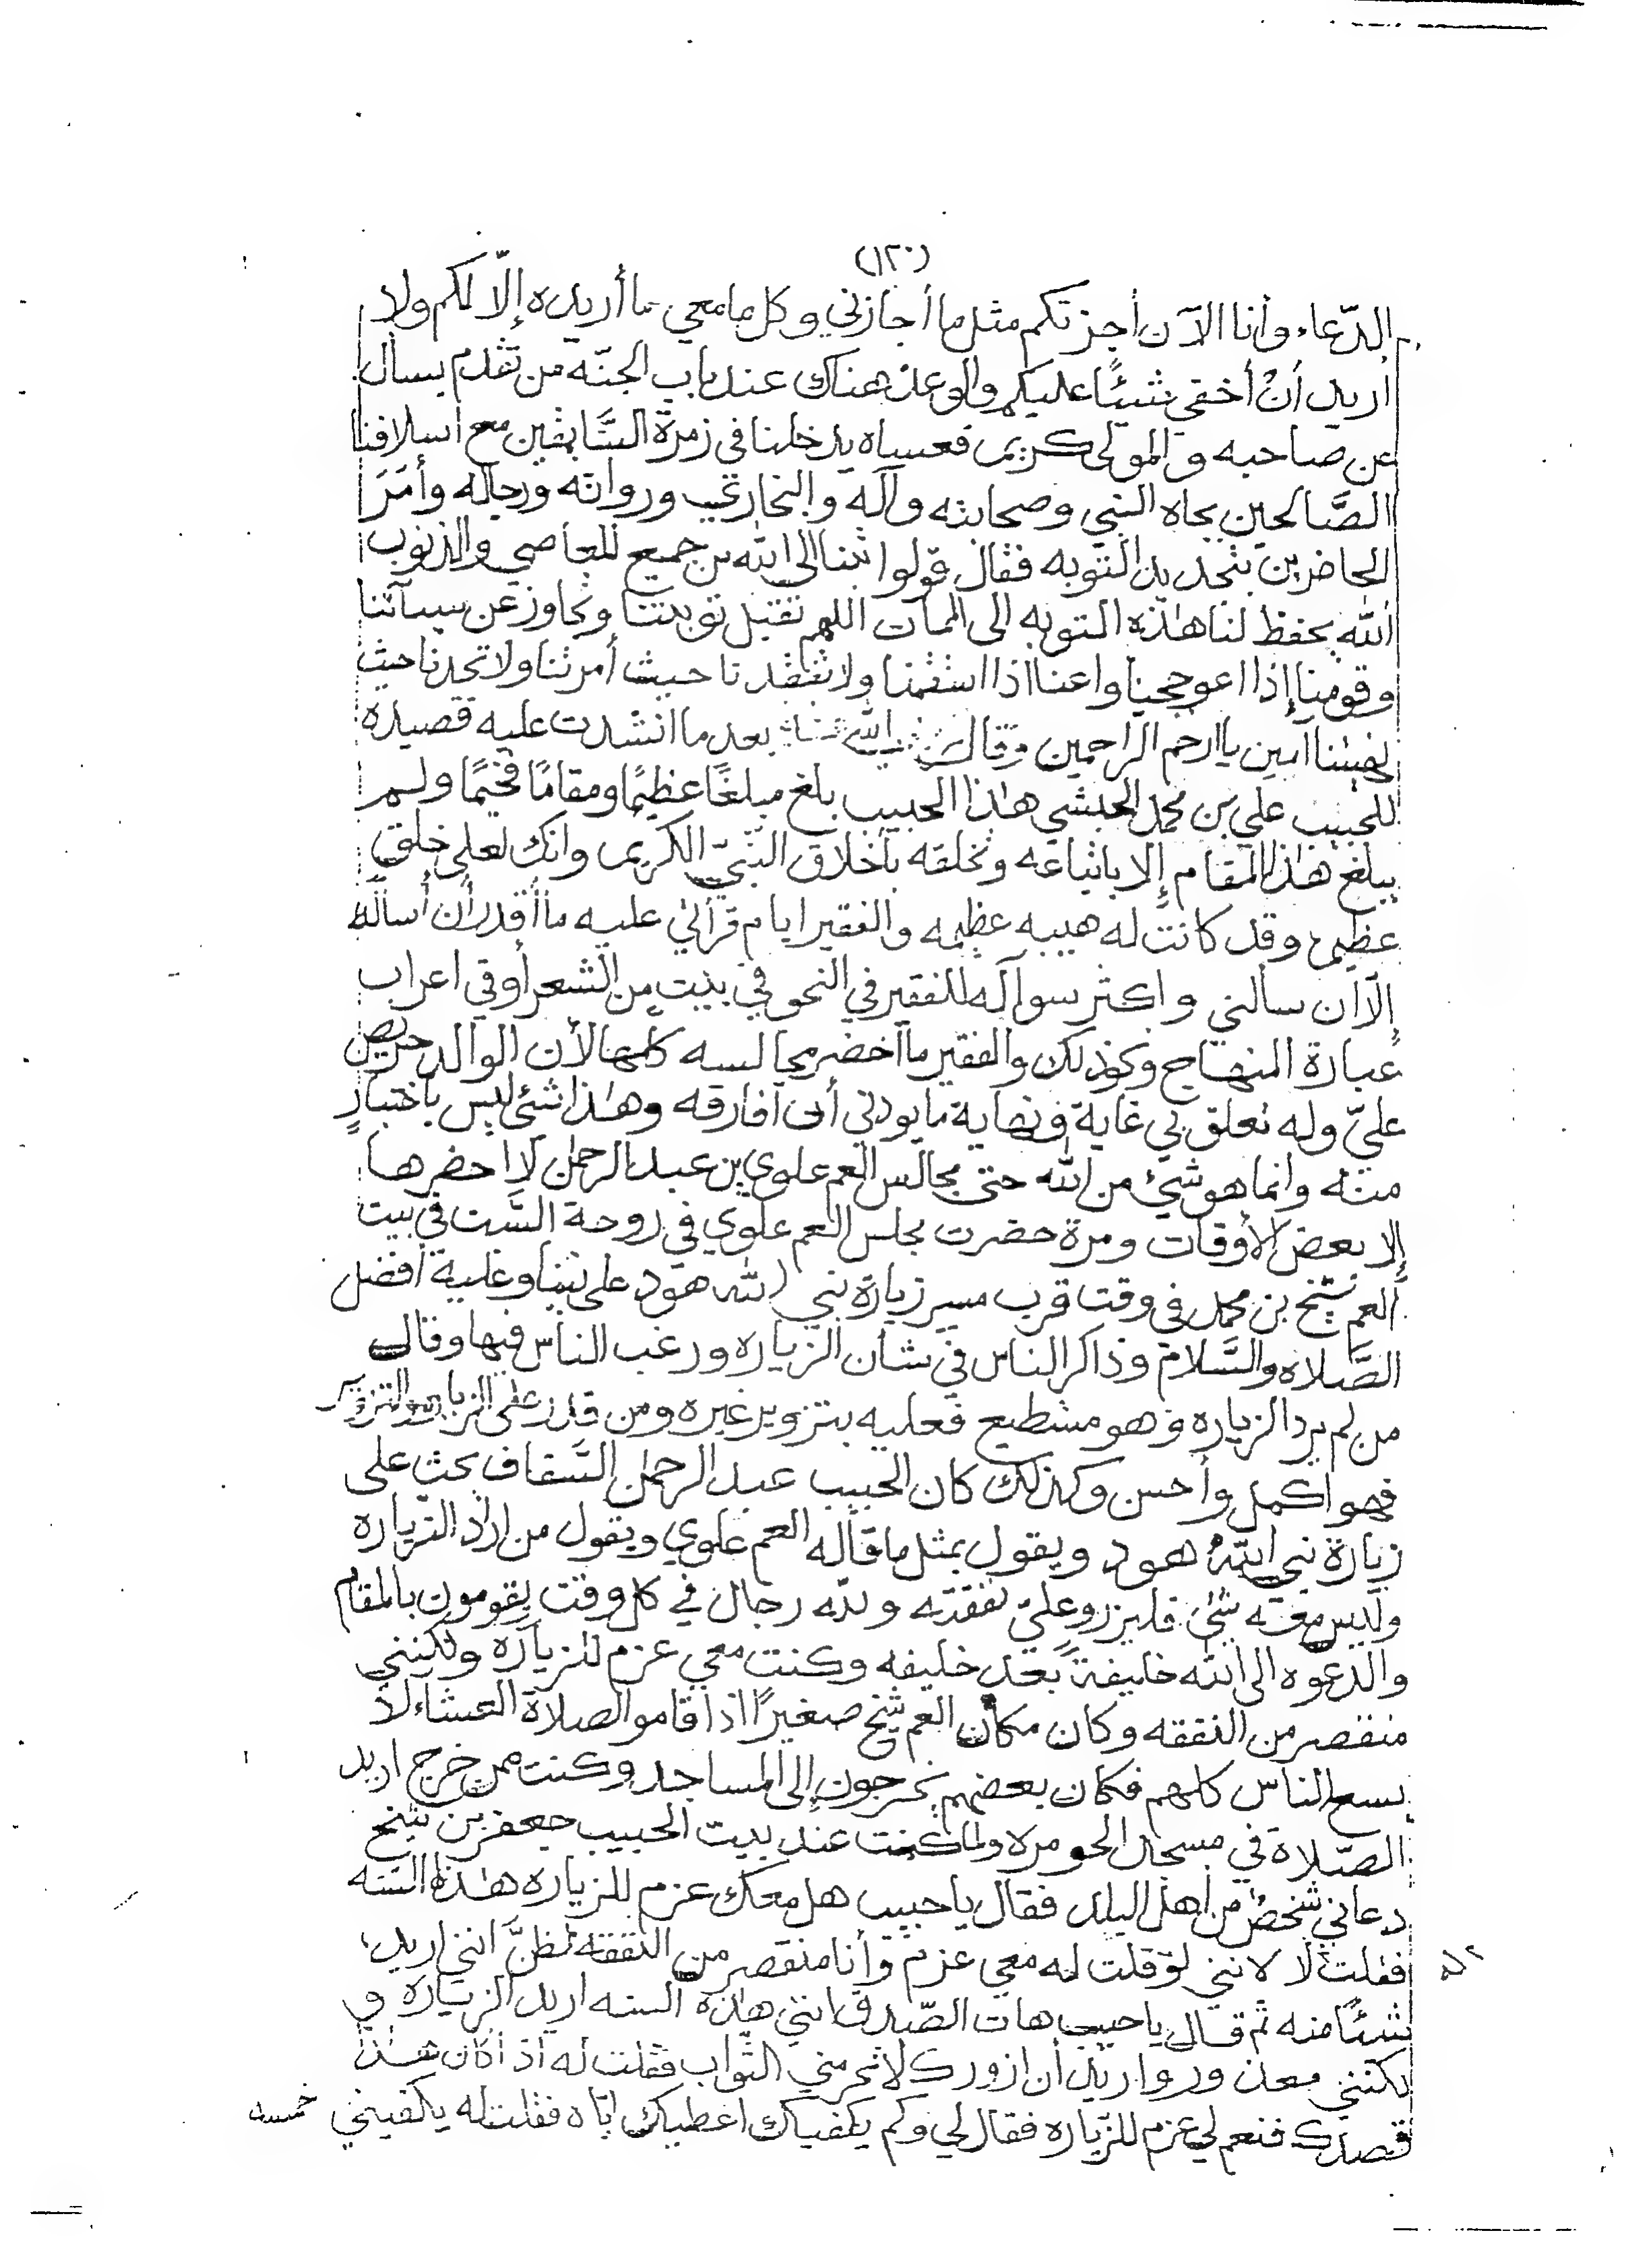 (١٢٠)
الدّعاء وأنا الآن أجزتكم مثل ما أجازني وكل ما معي ما أريده إلّا لكم ولا
اريد أنْ أخفي شيئًا عليكم والوعد هناك عند باب الجنّه من تقدم يسأل
عن صاحبه والمولى كريم فعساه يدخلنا في زمرة السَّابقين مع أسلافنا
الصَّالحين بجاه النبي وصحابته وآله والبخاري ورواته ورجاله وأمَرَ
الحاضرين بتجديد التوبه فقال قولوا تبنا الى الله من جميع المعاصي والذنوب
ألله يحفظ لنا هٰذه التوبه الى الممات اللهم تقبل توبتنا وتجاوز عن سيآتنا
وقومنا إذا اعوججنا واعنا اذا استقمنا ولا تفقدنا حيث أمرتنا ولا تجدنا حيث
نهيتنا امين يا ارحم الراحمين وقال الله بعد ما انشدت عليه قصيده
للحبيب علي بن محمد الحبشي هٰذا الحبيب بلغ مبلغًا عظيمًا ومقامًا فخيمًا ولم
يبلغ هٰذا المقام إلا باتباعه وتخلقه بأخلاق النّبيّ الكريم وانك لعلى خلق
عظيم وقد كانت له هيبه عظيمه والفقير ايام قرأتي عليه ما أقدر أن أسأله
إلّا أن سألني واكثر سوآله للفقير في النحو في بيتٍ من الشعر أو في اعراب
عبارة المنهاج وكوذلك والفقير ما احضر مجالسه كلها لأن الوالد حريص
عليّ وله تعلق بي غاية ونهاية ما يودني أن افارقه وهٰذا شئ ليس باختيارٍ
منه وانما هو شئ من الله حتى مجالس العم علوي بن عبد الرحمٰن لا احضرها
إلا بعض الأوقات ومرة حضرت مجلس العم علوي في روحة السَّبت في بيت
العم شيخ بن محمد في وقت قرب مسير زيارة نبي الله هود على نبينا وعليه أفضل
الصَّلاه والسَّلام وذاكر الناس في شأن الزياره ورغب الناس فيها وقال
من لم يرد الزياره وهو مستطيع فعليه بتزوير غيره ومن قدر على الزياره والتزوير
فهو اكمل وأحسن وكذلك كان الحبيب عبد الرحمٰن السَّقاف يحث على
زيارة نبي اللّٰه هود ويقول بمثل ما قاله العم علوي ويقول من اراد الزّياره
وليس معه شئ فليزر وعليّ نفقته ولله رجال في كل وقت يقومون بالمقام
والدعوه الى الله خليفةً بعد خليفه وكنت معي عزم للزياره ولكنني
منقصر من النفقه وكان مكان العم شيخ صغيرًا اذا قاموا لصلاة العشاء لا
يسع الناس كلهم فكان بعضهم يخرجون إلى المساجد وكنت ممن خرج اريد
الصّلاة في مسجد الحومره ولما كنت عند بيت الحبيب جعفر بن شيخ
دعاني شخصٌ من أهل البلد فقال يا حبيب هل معك عزم للزياره هٰذه السّنه
فقلت لا لانني لو قلت له معي عزم وأنا منقصر من النفقه لظنَّ انني اريد
شيئًا منه ثم قال يا حبيب هات الصّدق انني هٰذه السنه اريد الزياره و
لكنني معذور واريد أن ازورك لا تحرمني الثواب فقلت له اذا كان هٰذا
قصدك فنعم لي عزم للزّياره فقال لي وكم يكفياك اعطياك ايّاه فقلت له يكفيني خمسه